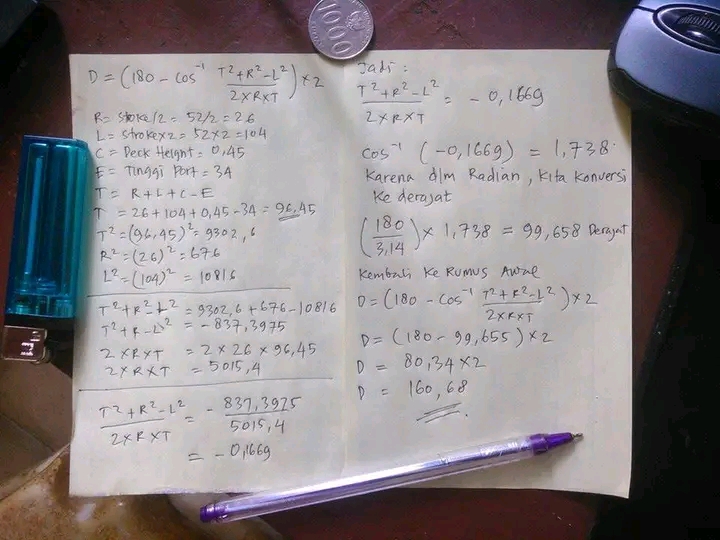 1000
D = (180 - cos⁻¹ T²+R²-L² / 2×R×T) × 2
R = stroke/2 = 52/2 = 26
L = stroke×2 = 52×2 = 104
C = Deck Height = 0,45
E = Tinggi Port = 34
T = R+L+C-E
T = 26+104+0,45-34 = 96,45
T² = (96,45)² = 9302,6
R² = (26)² = 676
L² = (104)² = 10816
T²+R²-L² = 9302,6 + 676 - 10816
T²+R-L² = -837,3975
2×R×T = 2 × 26 × 96,45
2×R×T = 5015,4
T²+R²-L² / 2×R×T = - 837,3975 / 5015,4
= -0,1669
Jadi :
T²+R²-L² / 2×R×T = -0,1669
cos⁻¹ (-0,1669) = 1,738
Karena dlm Radian, Kita Konversi
Ke derajat
(180 / 3,14) × 1,738 = 99,658 Derajat
Kembali Ke Rumus Awal
D = (180 - cos⁻¹ T²+R²-L² / 2×R×T) × 2
D = (180 - 99,655) × 2
D = 80,34 × 2
D = 160,68